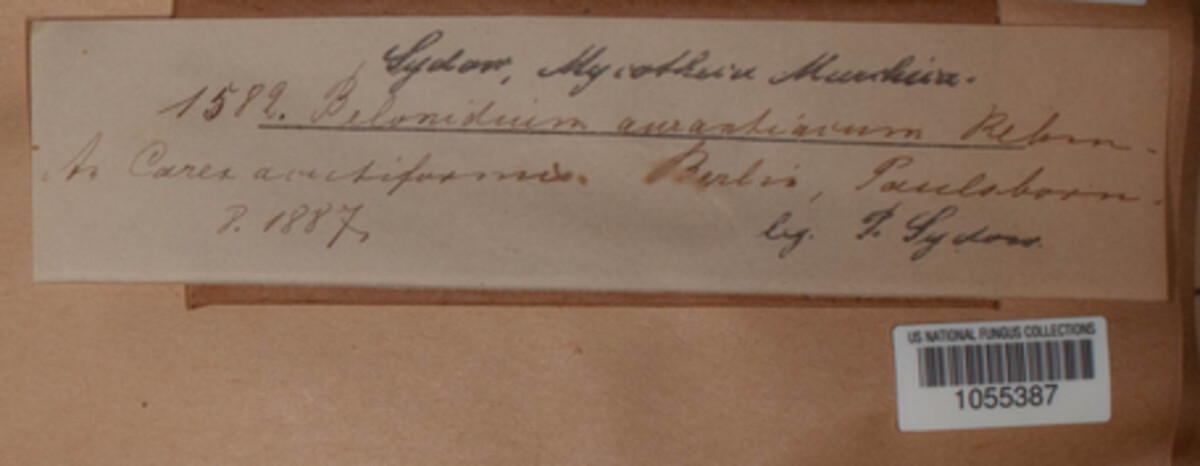 Sydow, Mycotheca Marchica.
1582. Belonidium aurantiacum Rehm.
An Carex acutiformis. Berlin, Paulsborn.
8. 1887. leg. P. Sydow.
US NATIONAL FUNGUS COLLECTIONS
1055387